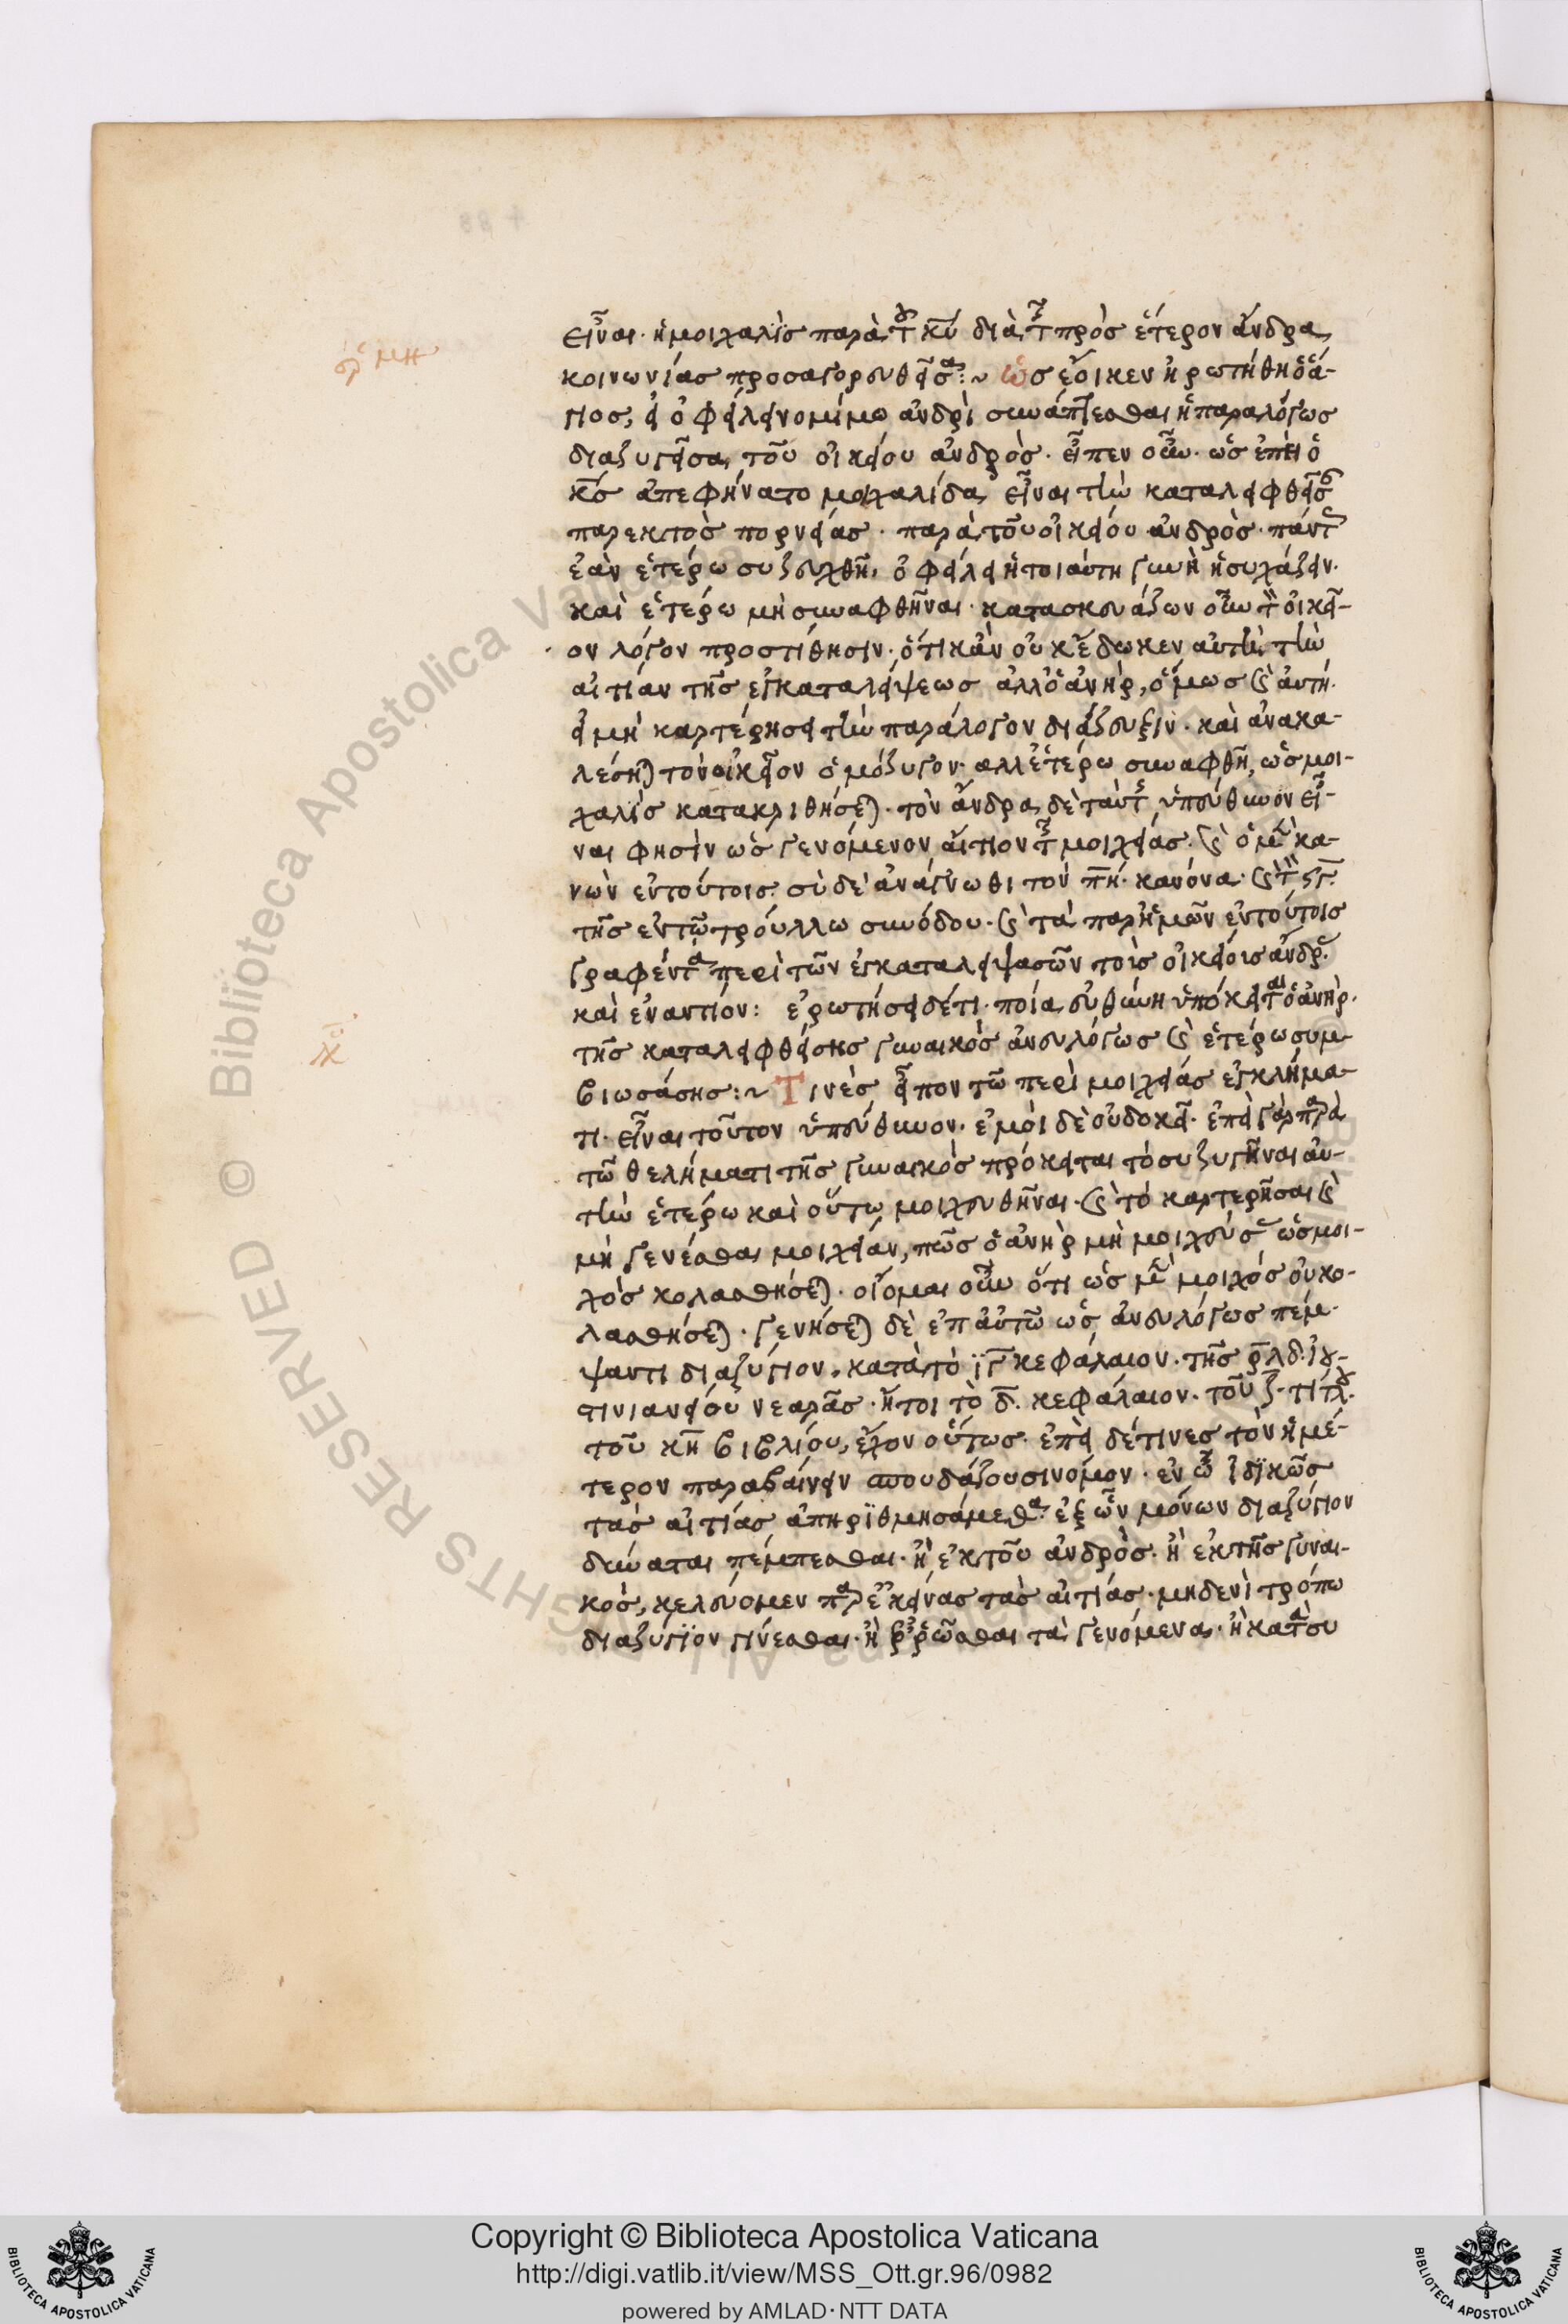 εἶναι· ἡ μοιχαλὶς παρὰ τοῦ κυ διὰ τῆς πρὸς ἕτερον ἄνδρα
ὅρ μη
κοινωνίας προσαγορευθεῖσα :~ ὡς ἔοικεν ἠρωτήθη ὁ ἅ-
γιος, εἰ ὀφείλει νομίμω ἀνδρὶ συνάπτεσθαι ἡ παραλόγως
διαζυγεῖσα τοῦ οἰκείου ἀνδρὸς· εἶπεν οὖν· ὡς ἐπεὶ ὁ
κς ἀπεφήνατο μοιχαλίδα εἶναι τὴν καταλειφθεῖσαν
παρεκτὸς πορνείας· παρὰ τοῦ οἰκείου ἀνδρὸς· πάντως
ἐὰν ἑτέρω συζευχθῆ, ὀφείλει ἡ τοιαύτη γυνὴ ἡσυχάζειν·
καὶ ἑτέρω μὴ συναφθῆναι· κατασκευάζων οὖν τὸν οἰκεῖ-
ον λόγον προστίθησιν· ὅτι κἂν οὐκ ἔδωκεν αὐτὴ τὴν
αἰτίαν τῆς ἐγκαταλείψεως ἀλλ' ὁ ἀνὴρ, ὅμως καὶ αὐτὴ·
εἰ μὴ καρτερήσει τὴν παράλογον διάζευξιν· καὶ ἀνακα-
λέσηται τὸν οἰκεῖον ὁμόζυγον· ἀλλ' ἑτέρω συναφθῆ, ὡς μοι-
χαλὶς κατακριθήσεται· τὸν ἄνδρα δὲ ταύτης ὑπεύθυνον εἶ-
ναι φησὶν ὡς γενόμενον αἴτιον τῆς μοιχείας· καὶ ὁ μὲν κα-
νὼν ἐν τούτοις· σὺ δὲ ἀνάγνωθι τὸν πη· κανόνα· καὶ τὸν ςγ·
τῆς ἐν τῶ τρούλλω συνόδου· καὶ τὰ παρ' ἡμῶν ἐν τούτοις
γραφέντα περὶ τῶν ἐγκαταλειψασῶν τοὺς οἰκείους ἄνδρας·
καὶ ἐναντίον: ἐρωτήσει δέ τι· ποία εὐθύνη ὑπόκειται ὁ ἀνὴρ·
τῆς καταλειφθείσης γυναικὸς ἀνευλόγως καὶ ἑτέρω συμ-
βιωσάσης :~ Τινὲς εἶπον τῶ περὶ μοιχείας ἐγκλήμα-
τι· εἶναι τοῦτον ὑπεύθυνον· ἐμοὶ δὲ οὐ δοκεῖ· ἐπεὶ γὰρ παρὰ
τῶ θελήματι τῆς γυναικὸς πρόκειται τὸ συζυγῆναι αὐ-
τὴν ἑτέρω καὶ οὕτω μοιχευθῆναι· καὶ τὸ καρτερῆσαι καὶ
μὴ γενέσθαι μοιχείαν, πῶς ὁ ἀνὴρ μὴ μοιχεύσας ὡς μοι-
χὸς κολασθήσεται· οἴομαι οὖν ὅτι ὡς μὲν μοιχὸς οὐ κο-
λασθήσεται· γενήσεται δὲ ἐπ' αὐτῶ ὡς ἀνευλόγως πέμ-
ψαντι διαζύγιον, κατὰ τὸ ϊγ κεφάλαιον· τῆς ρλδ· ἰου-
στινιανείου νεαρᾶς· ἤτοι τὸ δ· κεφάλαιον· τοῦ ζ· τίτλου·
τοῦ κη βιβλίου, ἔχον οὕτως· ἐπεὶ δέ τινες τὸν ἡμέ-
τερον παραβαίνειν σπουδάζουσι νόμον· ἐν ὧ ἰδϊκῶς
τὰς αἰτίας ἀπηρϊθμησάμεθα· ἐξ ὧν μόνων διαζύγιον
δύναται πέμπεσθαι· ἢ ἐκ τοῦ ἀνδρὸς· ἢ ἐκ τῆς γυναι-
κὸς, κελεύομεν παρ' ἐκείνας τὰς αἰτίας· μηδενὶ τρόπω
διαζύγϊον γίνεσθαι· ἢ ἐρρῶσθαι τὰ γενόμενα· ἢ κατὰ συ
Copyright © Biblioteca Apostolica Vaticana
http://digi.vatlib.it/view/MSS_Ott.gr.96/0982
powered by AMLAD·NTT DATA